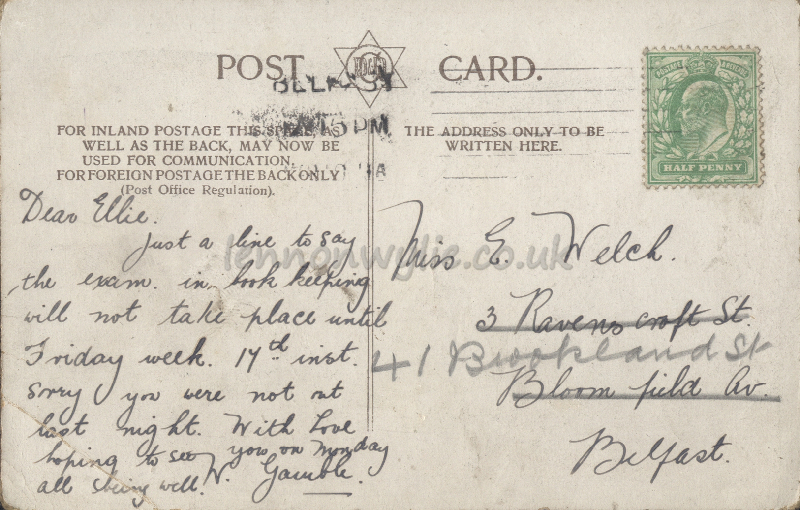 POST CARD.
BELFAST
15 PM
FOR INLAND POSTAGE THIS SPACE, AS
WELL AS THE BACK, MAY NOW BE
USED FOR COMMUNICATION.
FOR FOREIGN POSTAGE THE BACK ONLY
(Post Office Regulation).
THE ADDRESS ONLY TO BE
WRITTEN HERE.
POSTAGE & REVENUE
HALF PENNY
Dear Ellie.
Just a line to say
the exam. in book keeping
will not take place until
Friday week. 17th inst.
Sorry you were not out
last night. With Love
hoping to see you on Monday
all being well. W. Gamble.
Miss E. Welch.
3 Ravenscroft St.
41 Brookland St
Bloomfield Av.
Belfast.
lennonwylie.co.uk